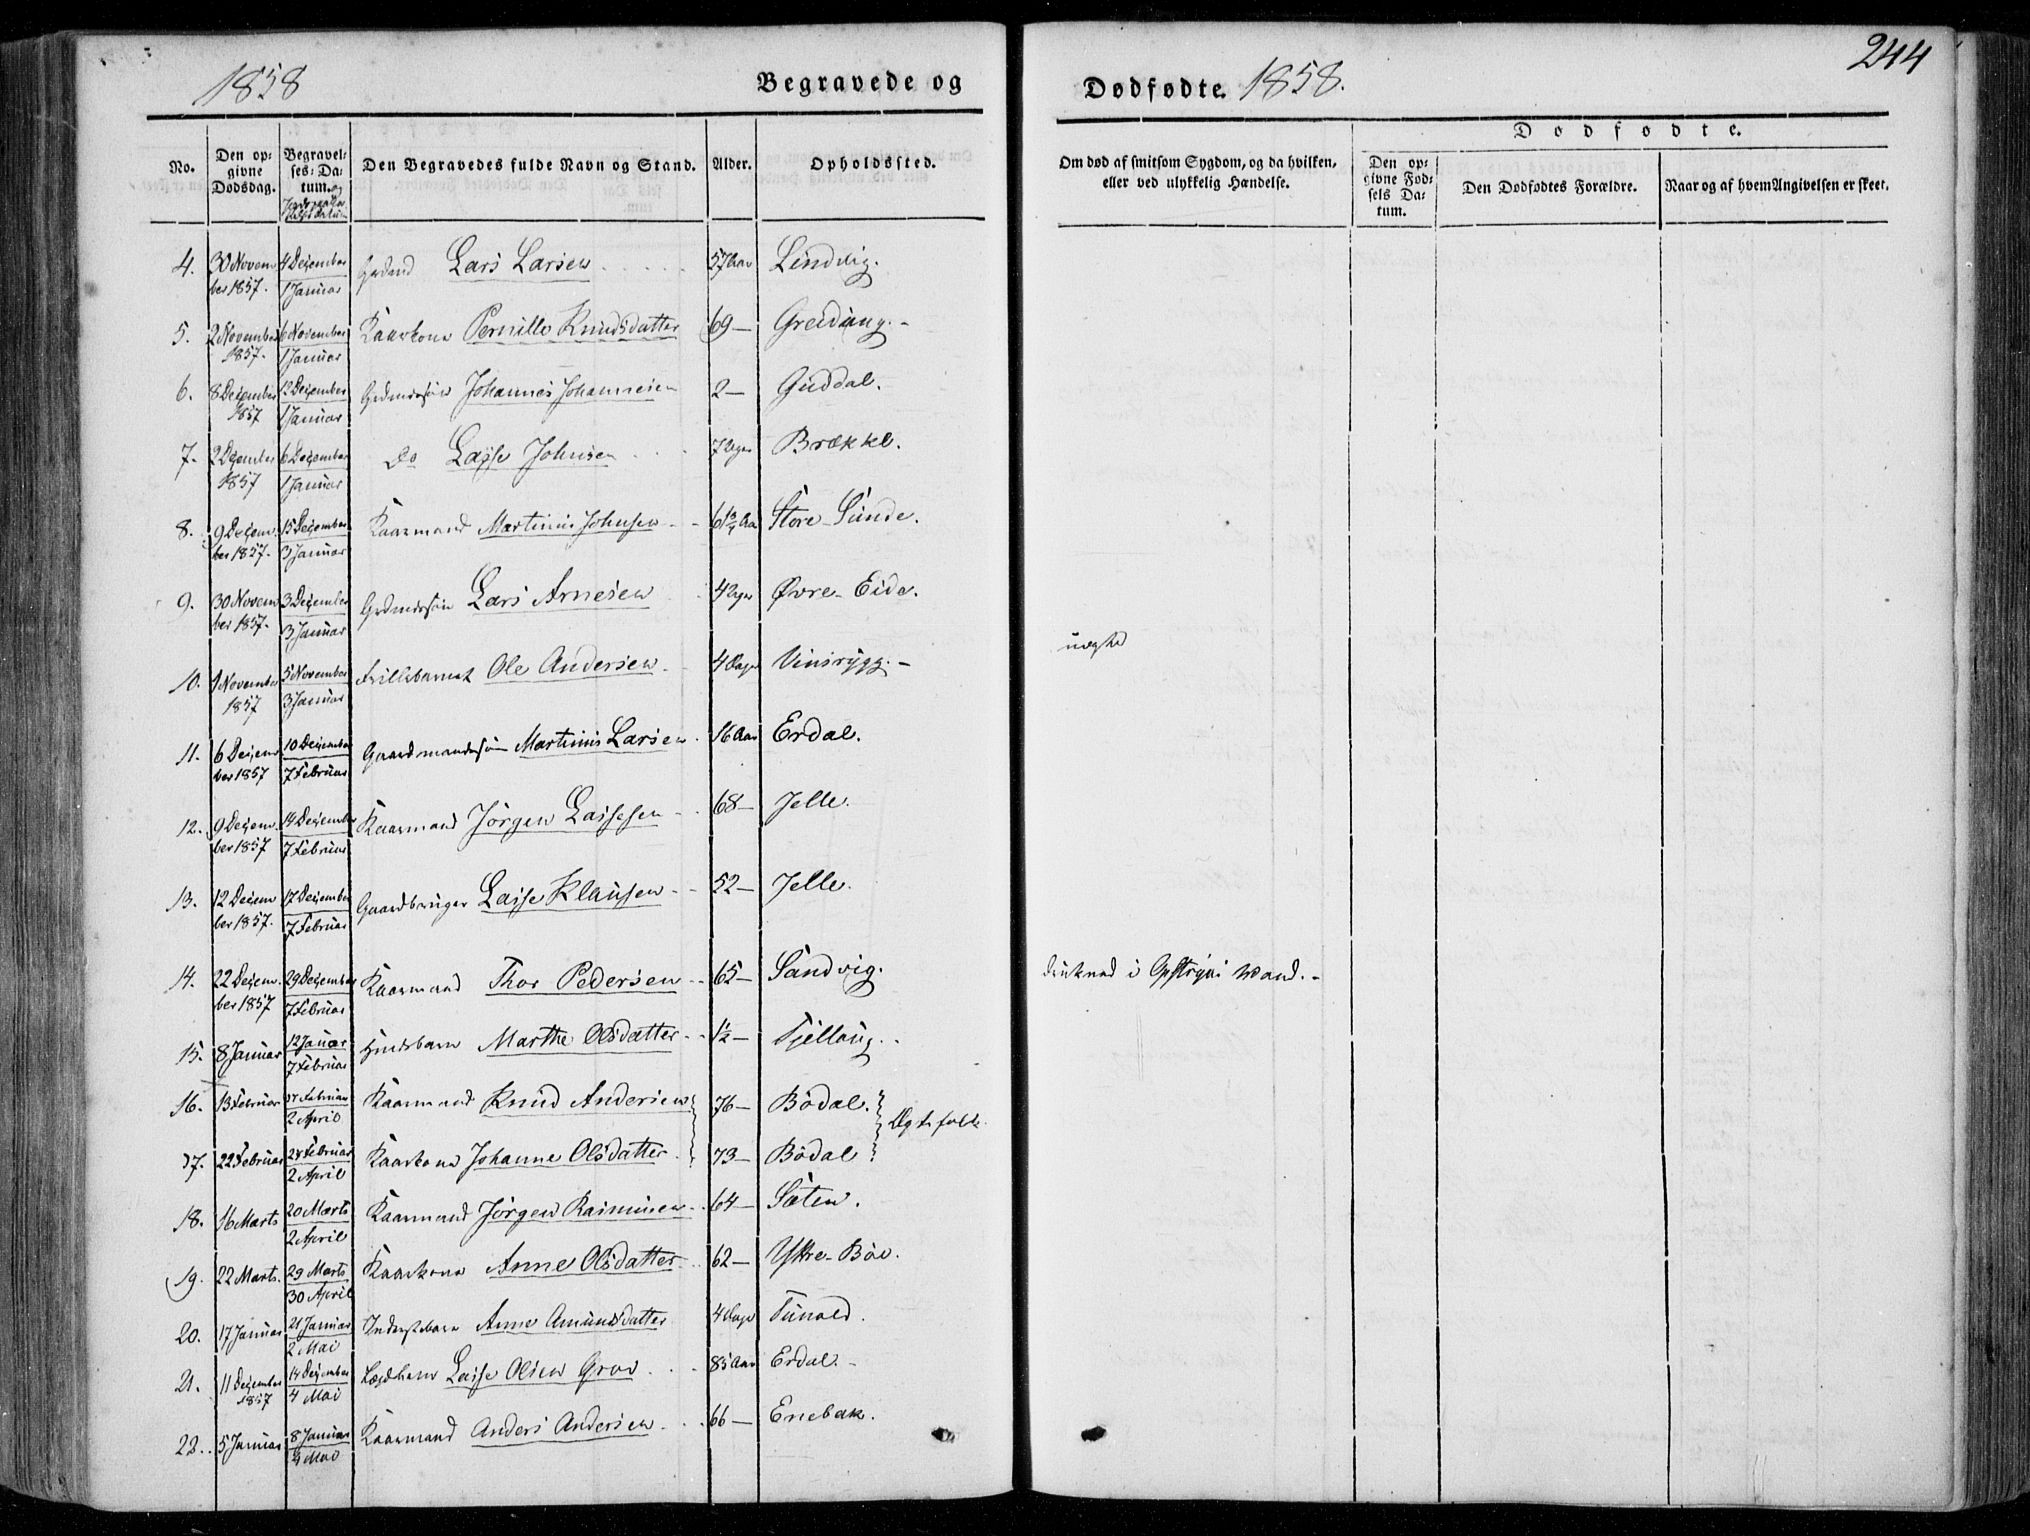 1858
Begravede og
Dødfødte. 1858.
244
No.
Den op-
givne
Dødsdag.
Begravel-
ses-Da-
tum. og
Den Begravedes fulde Navn og Stand.
Alder.
Opholdssted.
Om død af smitsom Sygdom, og da hvilken,
eller ved ulykkelig Hændelse.
Dødfødte.
Den op-
givne Fød-
sels Da-
tum.
Den Dødfødtes Forældre.
Naar og af hvem Angivelsen er skeet.
4. 30 Novem-ber 1857. 4 December 1 Januar Lars Larsen 57 Aar Lindvig.
5. 2 November 1857. 6 November 1 Januar Kaarkone Pernille Knudsdatter 69 — Greidung. -
6. 8 December 1857 12 December 1 Januar Johannes Johannesen 2 — Guddal.
7. 2 December 1857 6 December 1 Januar Do Lasse Johnsen 7 Uger Brække.
8. 9 Decem-ber 1857. 15 December 3 Januar Kaarmand Martinus Johnsen 61 3/4 Aar Store-Sunde.
9. 30 Novem-ber 1857. 3 December 3 Januar Lars Arnesen 4 Uger Øvre-Eide.
10. 1 November 1857 5 November 3 Januar Ole Andersen 4 Dage Vinsrygg. - uægte
11. 6 Decem-ber 1857 10 December 7 Februar Gaardmandssøn Martinus Larsen 16 Aar Erdal.
12. 9 Decem-ber 1857 14 December 7 Februar Kaarmand Jørgen Lassesen 68 — Jelle.
13. 12 Decem-ber 1857. 17 December 7 Februar Gaardbruger Lasse Klausen 52 — Jelle.
14. 22 Decem-ber 1857 29 December 7 Februar Kaarmand Thor Pedersen 65 — Sandvig. drukned i Opstryns Vand. -
15. 8 Januar 12 Januar 7 Februar Marthe Olsdatter 1 1/2 — Tjellaug.
16. 13 Februar Februar 2 April Kaarmand Knud Andersen 76 — Bødal. Ægtefolk.
17. 22 Februar Februar 2 April Kaarkone Johanne Olsdatter 73 — Bødal
18. 16 Marts 20 Marts 2 April Kaarmand Jørgen Rasmusen 64 — Sæten.
19. 22 Marts. 29 Marts 30 April Kaarkone Anne Olsdatter 62 — Yttre-Bøe.
20. 17 Januar 21 Januar 2 Mai Inderstebarn Anne Amundsdatter 4 Dage Tunold.
21. 11 December 1857 14 December 4 Mai Lægdlem Lasse Olsen Grov 85 Aar Erdal. -
22. 5 Januar 8 Januar 4 Mai Kaarmand Anders Andersen 66 — Enebak.